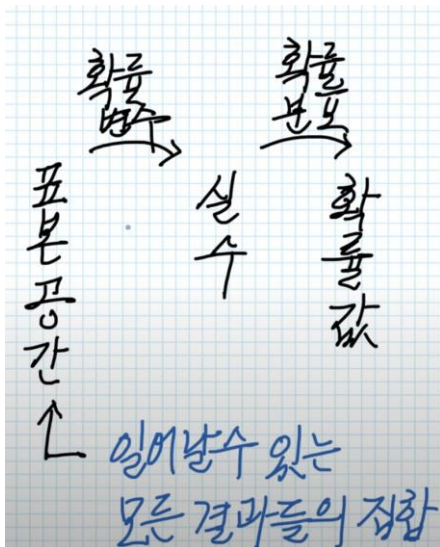 확률
변수
확률
분포
표본공간
실수
확률값
일어날수 있는
모든 결과들의 집합